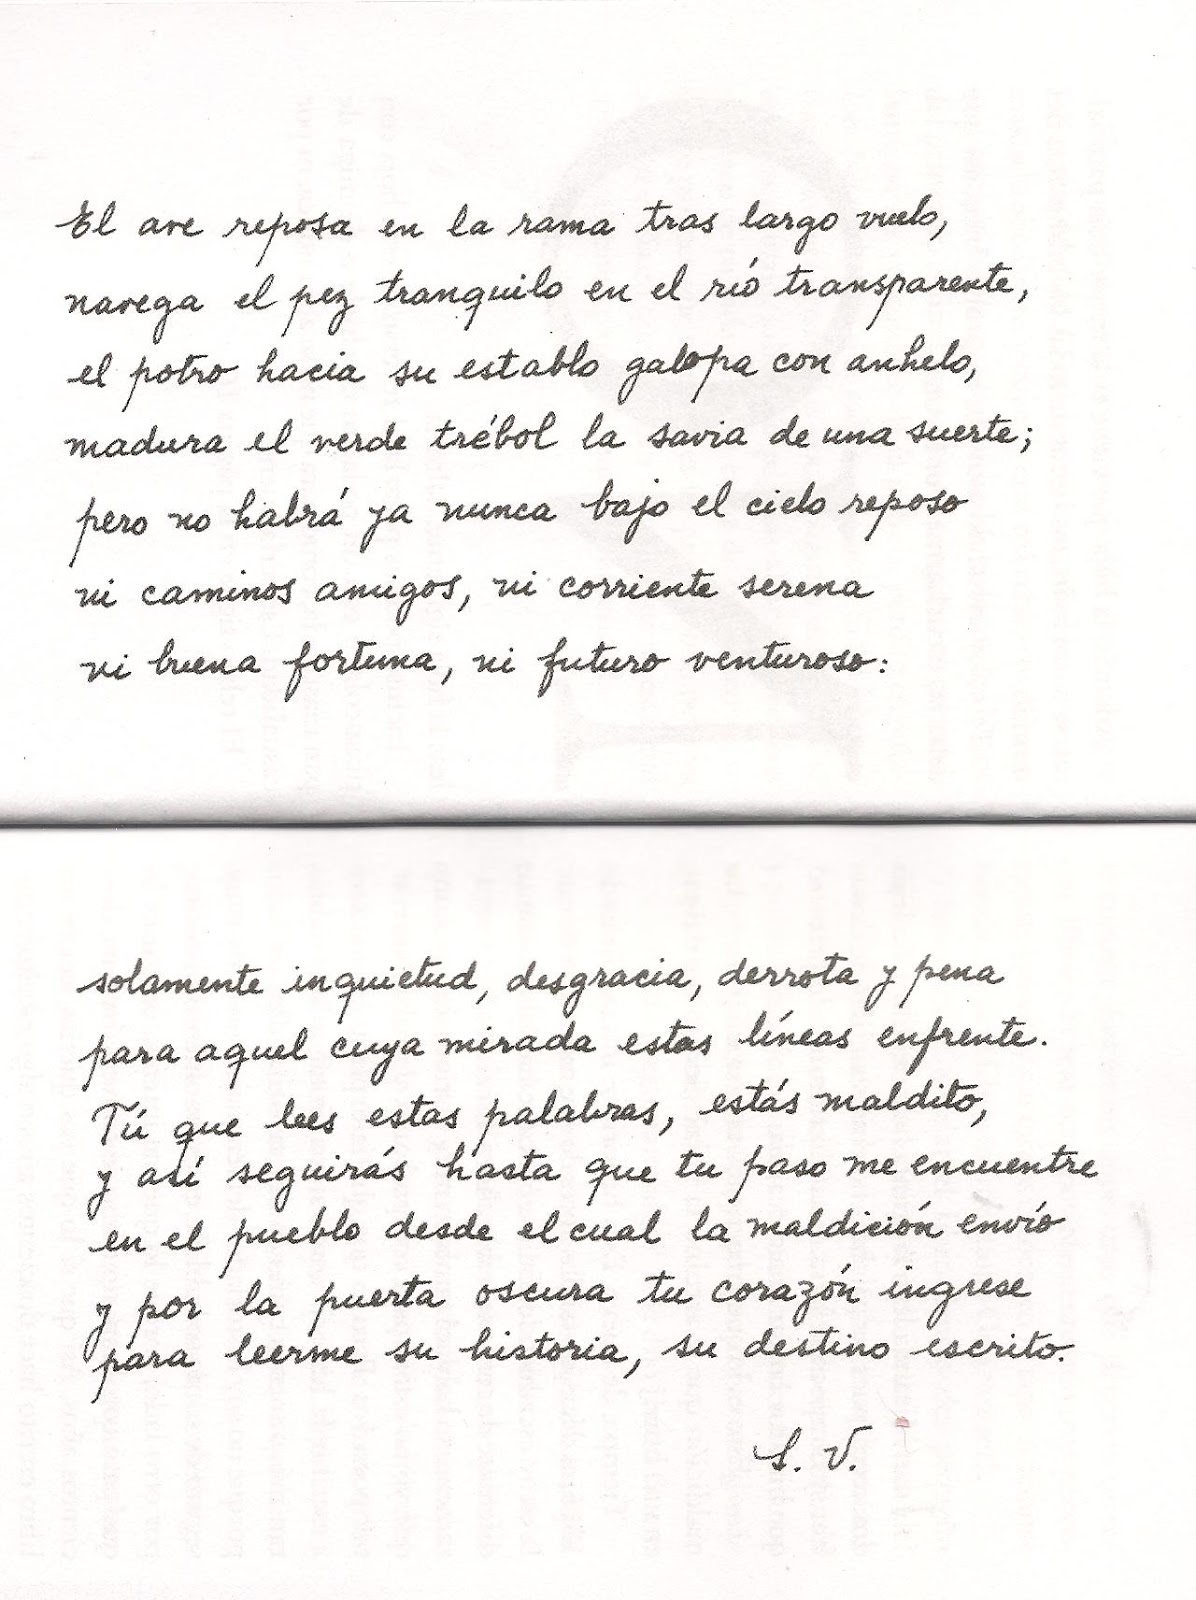 El ave reposa en la rama tras largo vuelo,
navega el pez tranquilo en el río transparente,
el potro hacia su establo galopa con anhelo,
madura el verde trébol la savia de una suerte;
pero no habrá ya nunca bajo el cielo reposo
ni caminos amigos, ni corriente serena
ni buena fortuna, ni futuro venturoso:
solamente inquietud, desgracia, derrota y pena
para aquel cuya mirada estas líneas enfrente.
Tú que lees estas palabras, estás maldito,
y así seguirás hasta que tu paso me encuentre
en el pueblo desde el cual la maldición envío
y por la puerta oscura tu corazón ingrese
para leerme su historia, su destino escrito.
S. V.